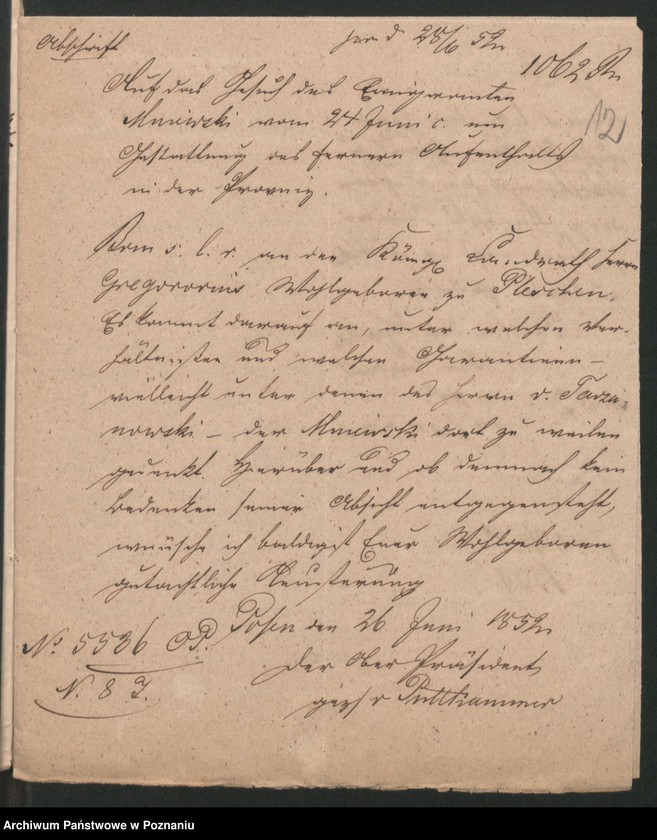 Abschrift
pr. d 28/6 52
1062
12
Auf das Gesuch des Emigranten
Mniewski vom 24 Juni c. um
Gestattung des fernern Aufenthalts
in der Provinz.
an den Königl Landrath Herrn
Gregorovius Wohlgeboren zu Pleschen.
Es kommt darauf an, unter welchen Ver-
hältnissen und welchen Garantieen –
vielleicht unter denen des Herrn v. Tarza-
nowski – der Mniewski dort zu weilen
gedenkt. Hierüber und ob demnach kein
Bedenken seiner Absicht entgegensteht,
wünsche ich baldigst Euer Wohlgeboren
gutachtliche Aeusserung
Posen den 26 Juni 1852
No 5536 OP.
Der Ober Präsident
N. 8 J.
gez v Puttkammer
Archiwum Państwowe w Poznaniu